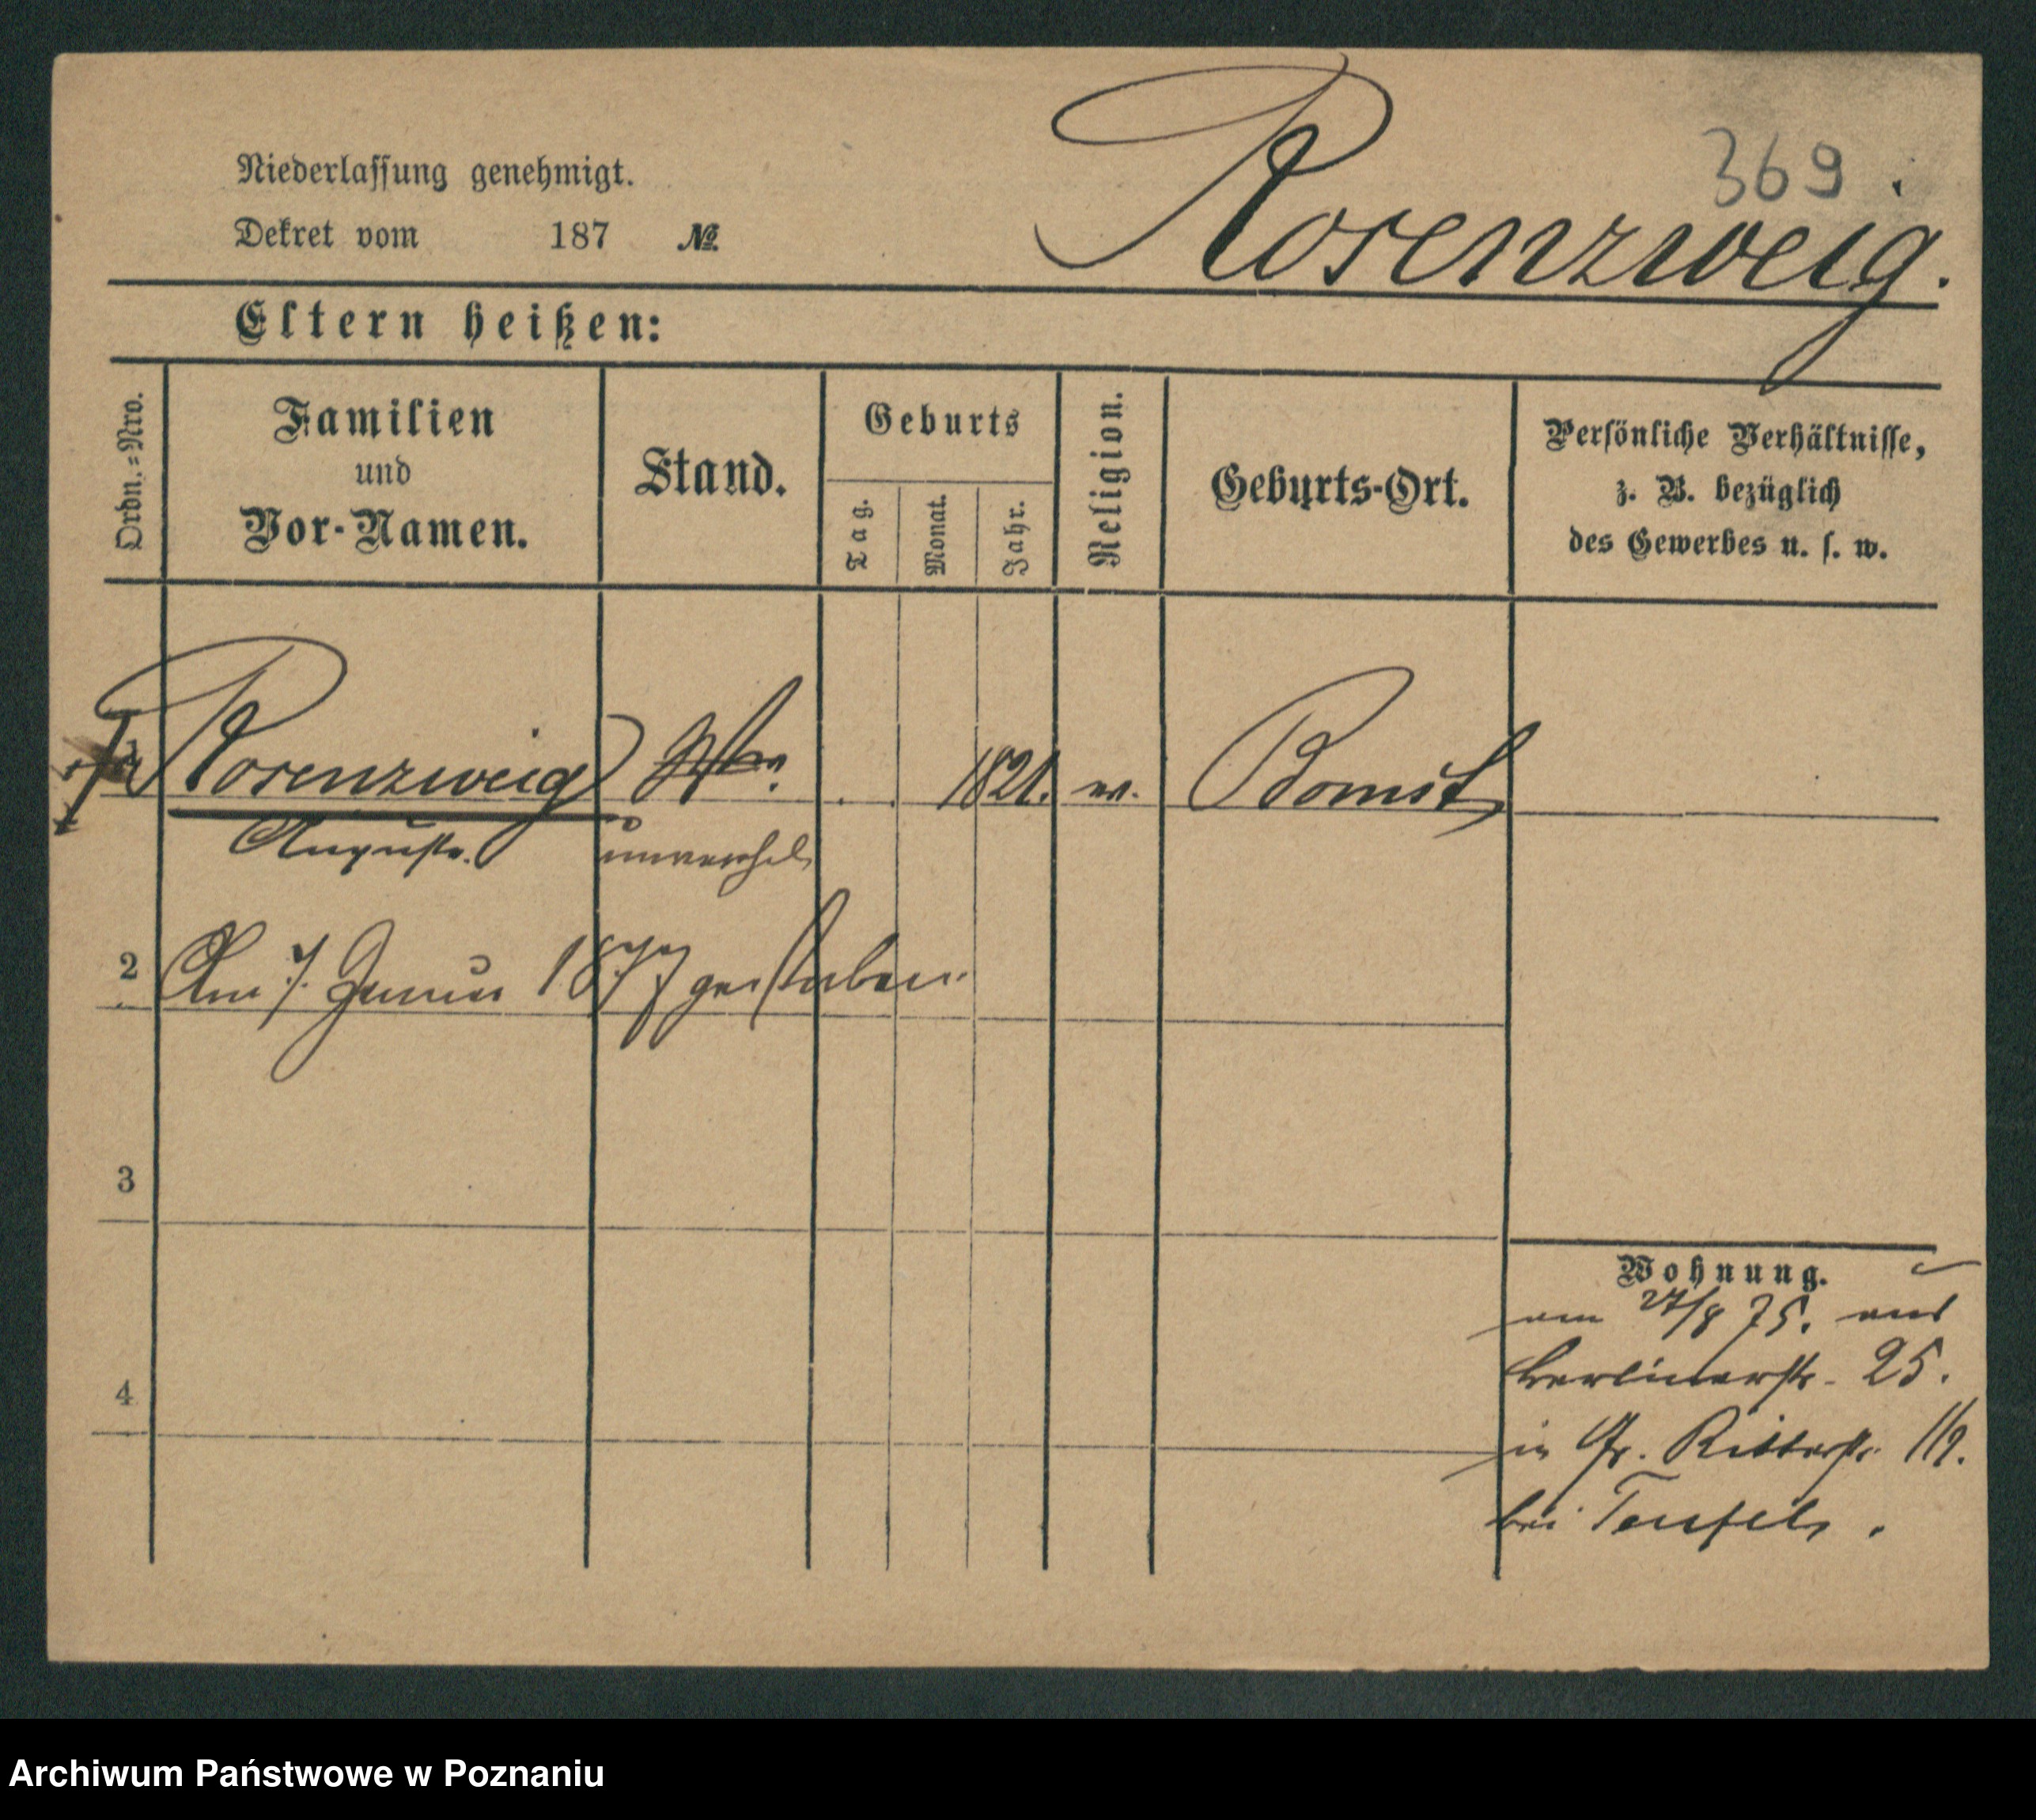 369
Rosenzweig.
Niederlassung genehmigt.
Dekret vom 187 №
Eltern heißen:
Ordn.=Nro.
Familien
und
Vor-Namen.
Stand.
Geburts
Tag.
Monat.
Jahr.
Religion.
Geburts-Ort.
Persönliche Verhältnisse,
z. B. bezüglich
des Gewerbes u. s. w.
Rosenzweig 1821. m. Bomst
Auguste. unverehel.
2 Am 7. Januar 1877 gestorben.
3
4
Wohnung.
am 27/8 75. aus
Berlinerstr. 25.
in Gr. Ritterstr.
bei Teufel.
Archiwum Państwowe w Poznaniu